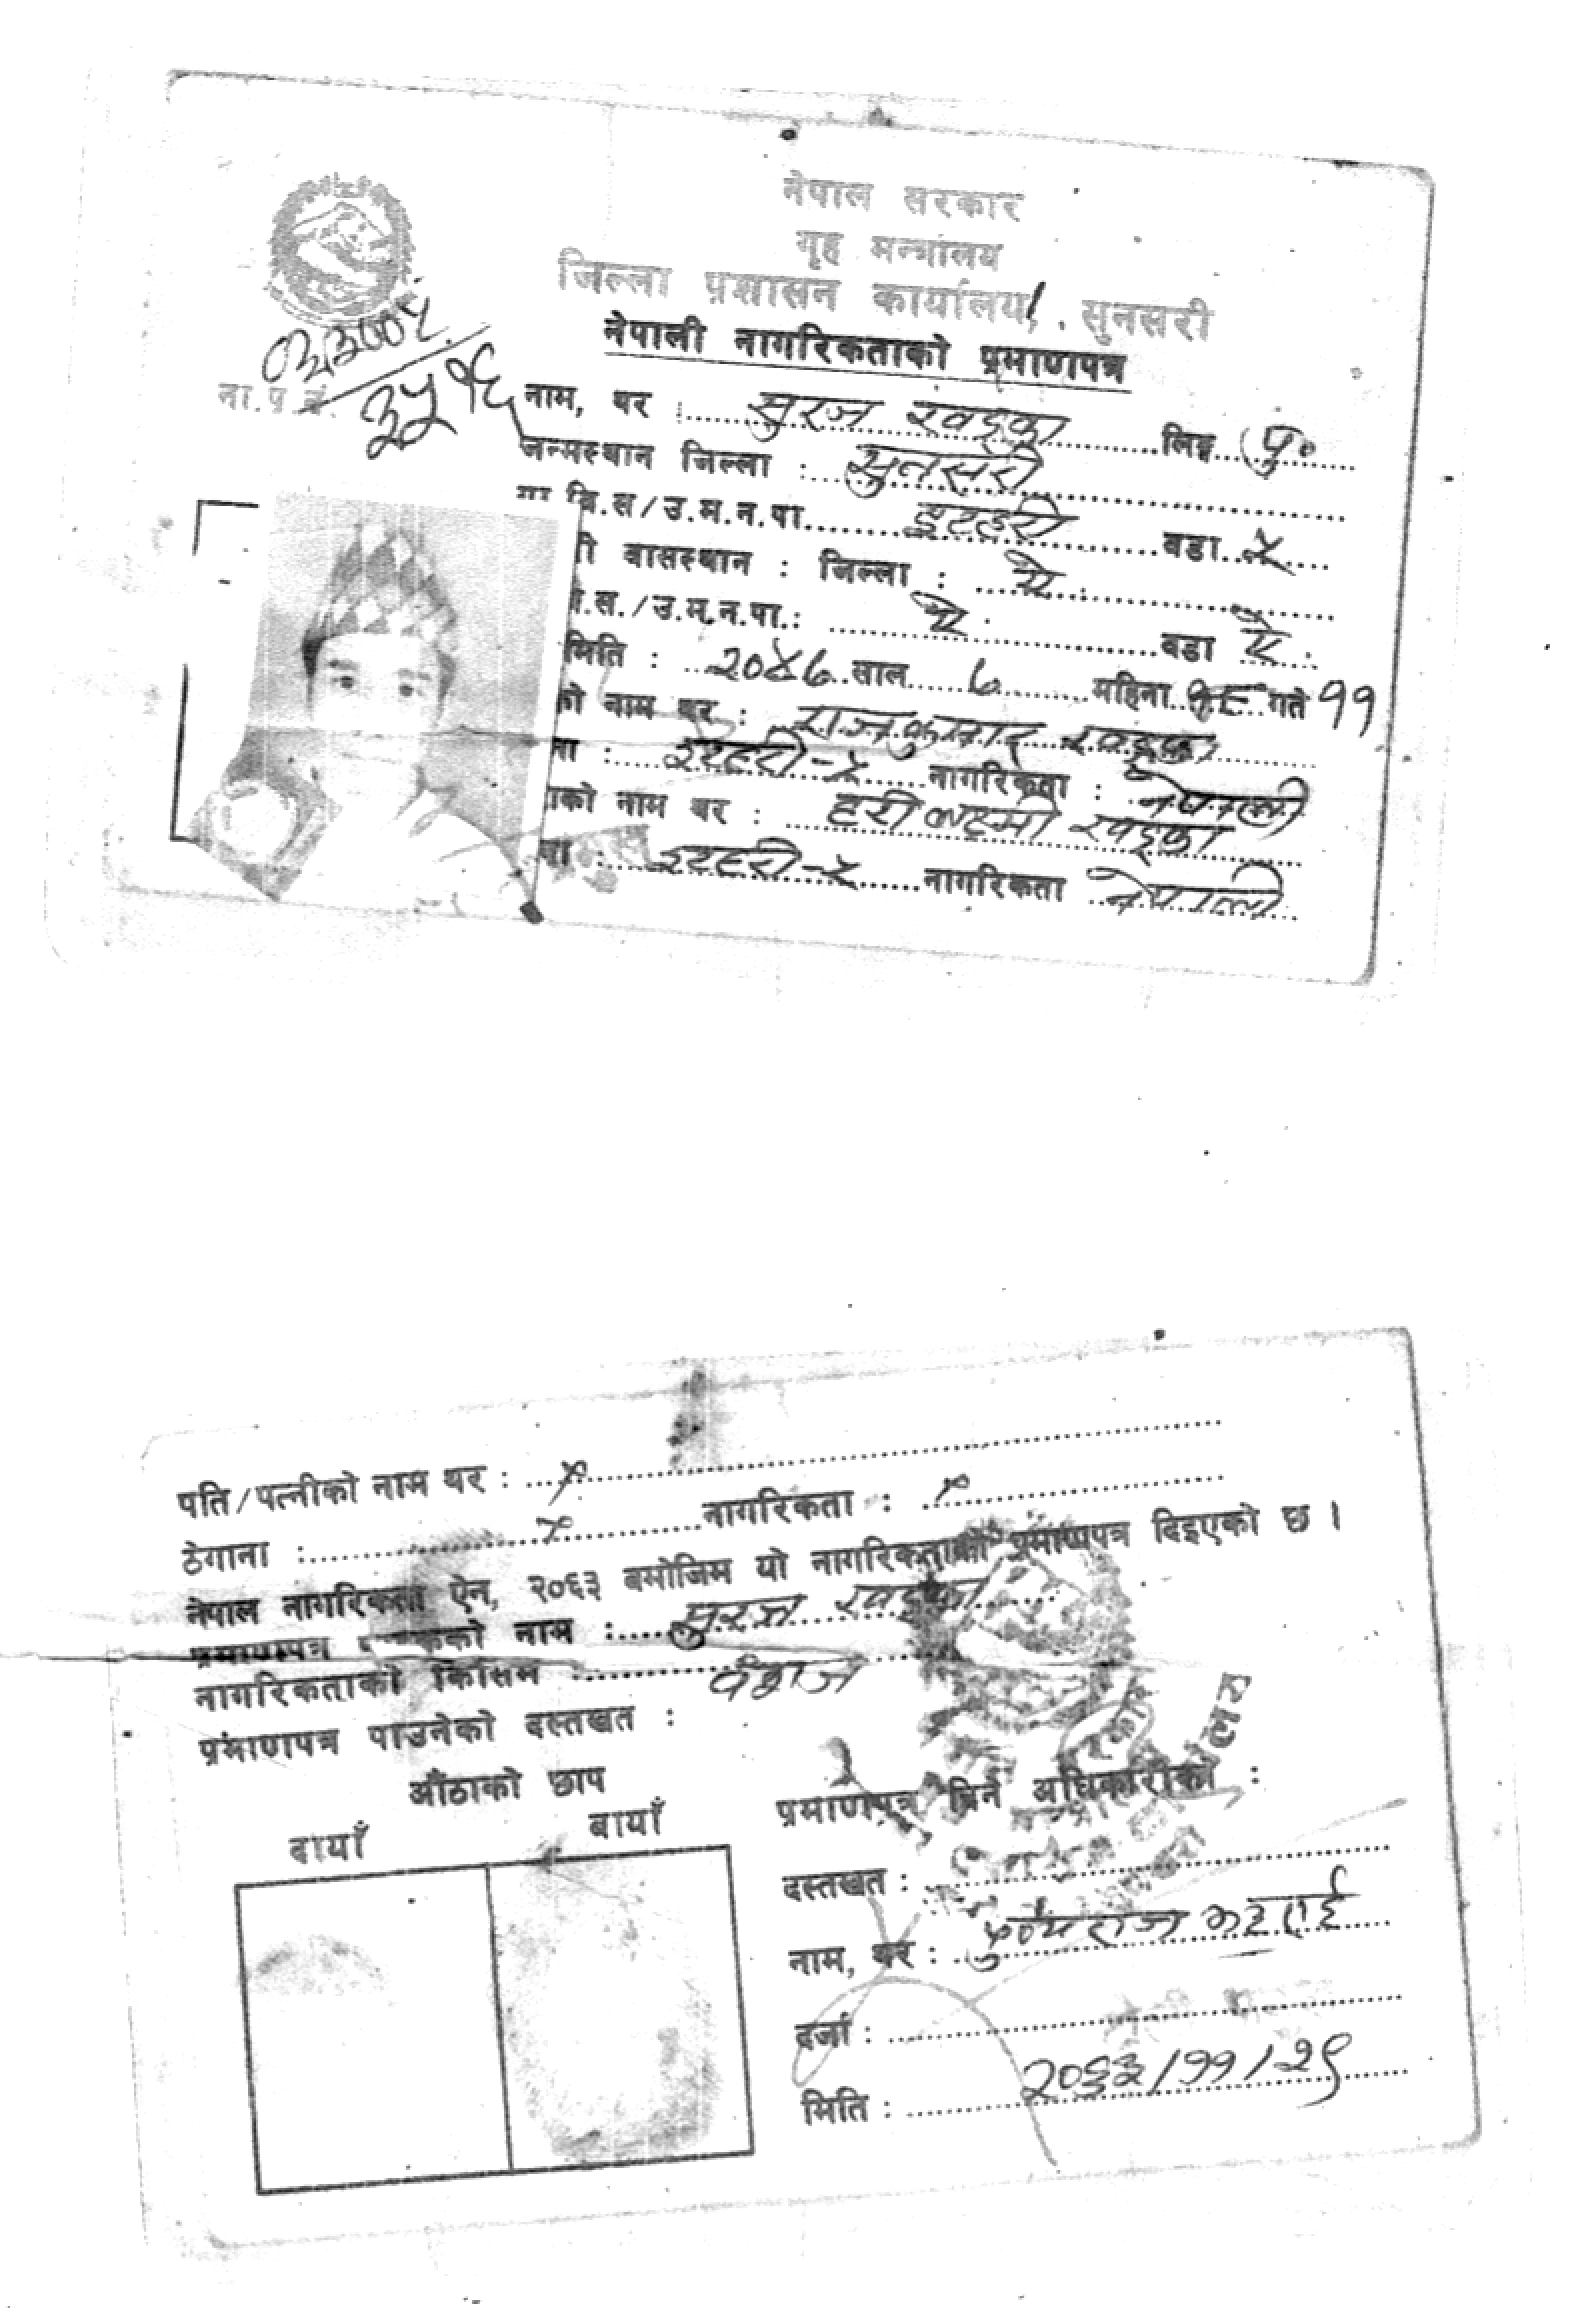 नेपाल सरकार
गृह मन्त्रालय
जिल्ला प्रशासन कार्यालय, सुनसरी
नेपाली नागरिकताको प्रमाणपत्र
ना.प.नं.
नाम, थर : सुरज खड्का लिङ्ग पु॰
जन्मस्थान जिल्ला : सुनसरी
वि.स/उ.म.न.पा. इटहरी वडा ५
वासस्थान : जिल्ला : ऐ.
स./उ.म.न.पा.: ऐ. वडा ऐ.
मिति : २०४७ साल ७ महिना गते ११
को नाम थर : राजकुमार खड्का
ना : इटहरी-५ नागरिकता : नेपाली
को नाम थर : हरी लक्ष्मी खड्का
इटहरी-५ नागरिकता नेपाली
पति/पत्नीको नाम थर :
ठेगाना : नागरिकता :
नेपाल नागरिकता ऐन, २०६३ बमोजिम यो नागरिकताको प्रमाणपत्र दिइएको छ ।
प्रमाणपत्र नाम : सुरज खड्का
नागरिकताको किसिम : वंशज
प्रमाणपत्र पाउनेको दस्तखत :
औंठाको छाप
दायाँ बायाँ
प्रमाणपत्र दिने अधिकारीको :
दस्तखत :
नाम, थर : भट्टराई
दर्जा :
मिति : २०६३/११/२९